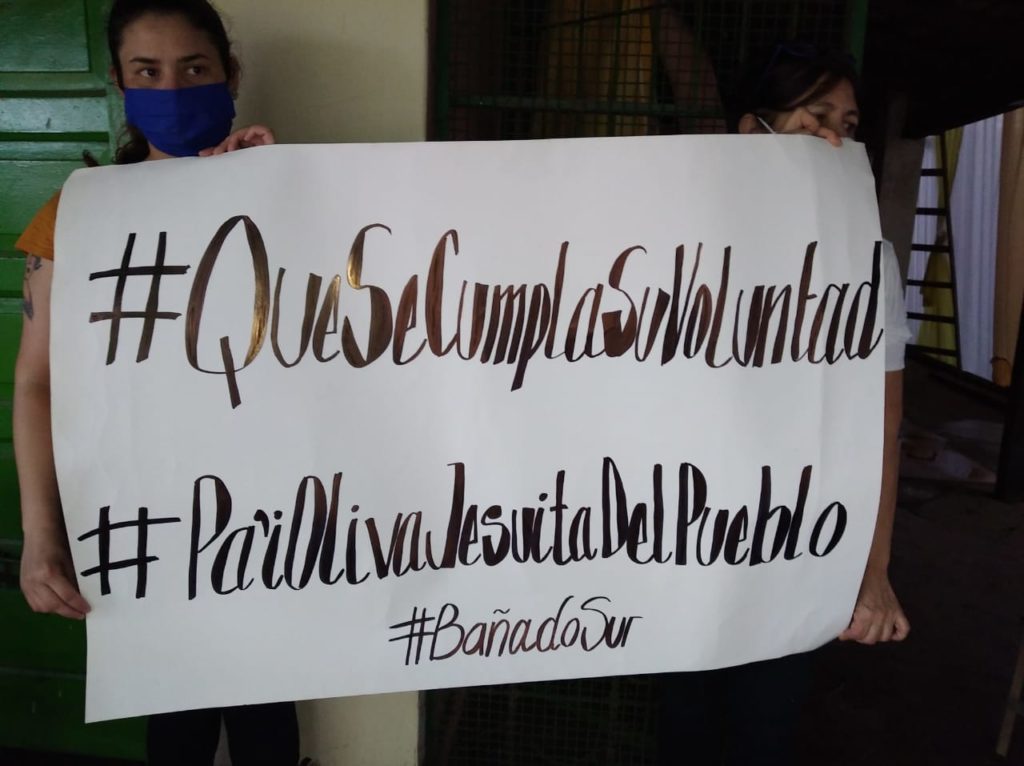 #QueSeCumplaSuVoluntad
#Pa'iOlivaJesuitaDelPueblo
#BañadoSur